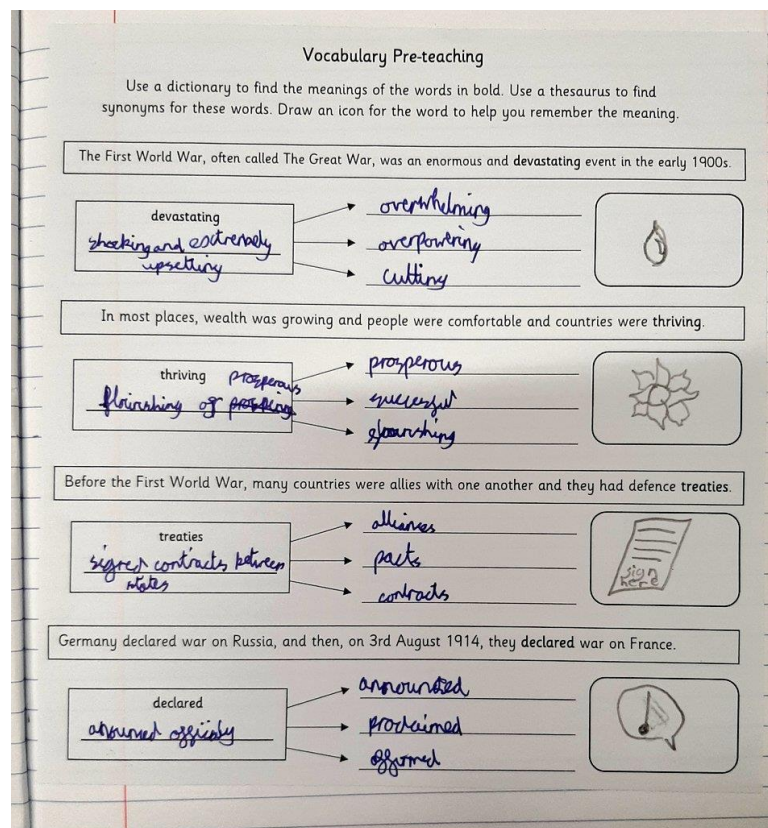 Vocabulary Pre-teaching
Use a dictionary to find the meanings of the words in bold. Use a thesaurus to find
synonyms for these words. Draw an icon for the word to help you remember the meaning.
The First World War, often called The Great War, was an enormous and devastating event in the early 1900s.
devastating
shocking and extremely
upsetting
overwhelming
overpowering
cutting
In most places, wealth was growing and people were comfortable and countries were thriving.
thriving
prosperous
flourishing or
prosperous
successful
flourishing
Before the First World War, many countries were allies with one another and they had defence treaties.
treaties
signed contracts between
states
alliances
pacts
contracts
sign
here
Germany declared war on Russia, and then, on 3rd August 1914, they declared war on France.
declared
officialy
announced
proclaimed
affirmed